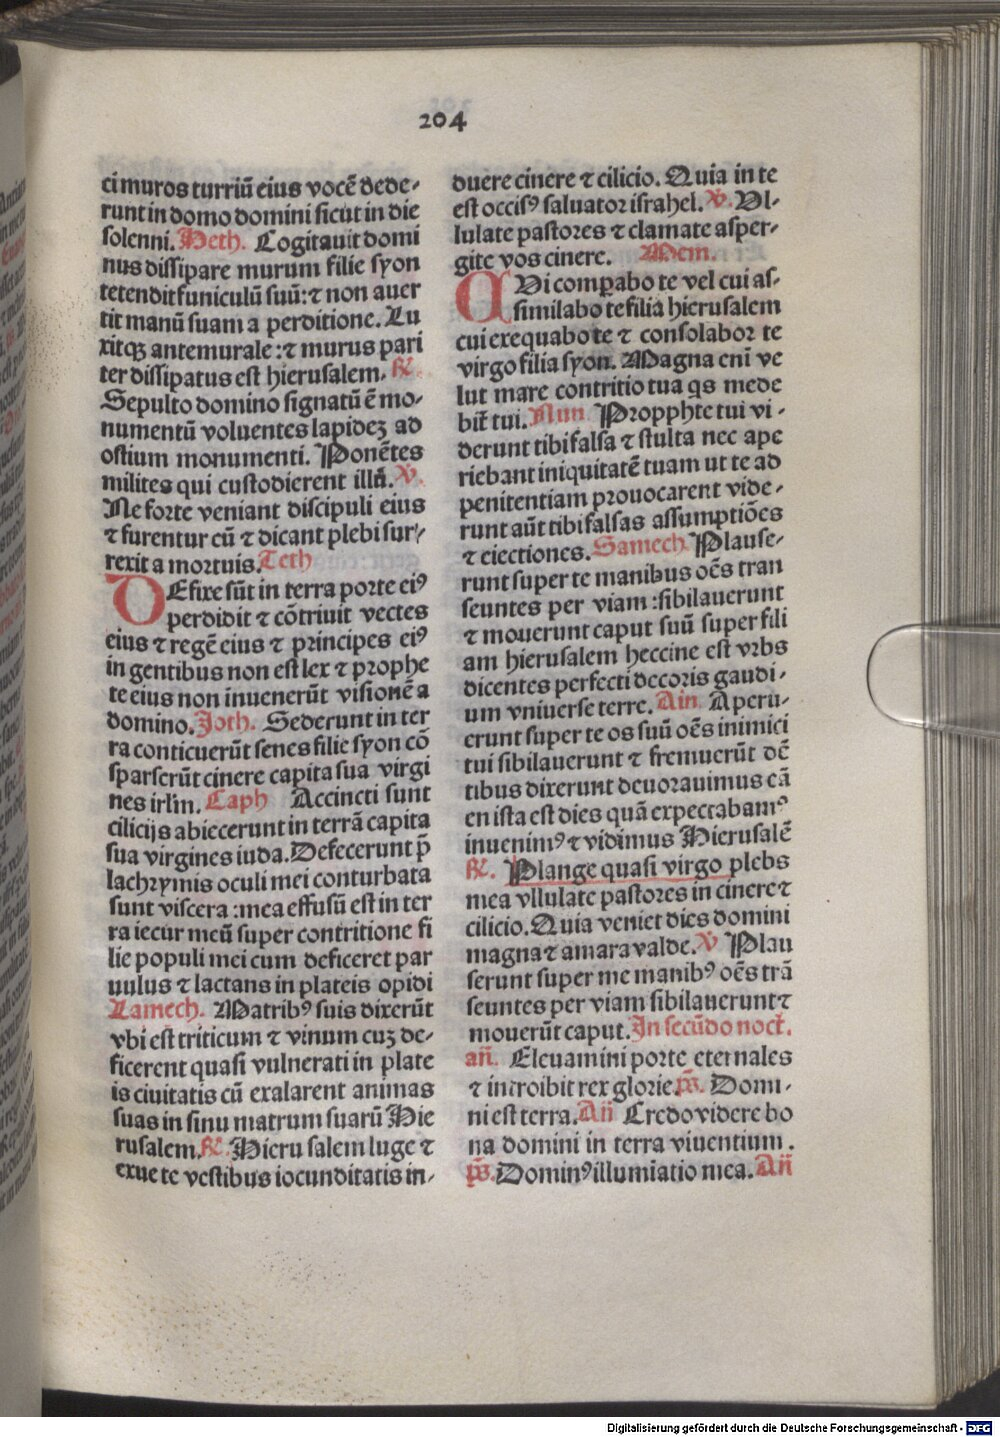 204
ci muros turriū eius vocē dede-
runt in domo domini sicut in die
solenni. Heth. Cogitauit domi
nus dissipare murum filie syon
tetendit funiculū suū: ⁊ non auer
tit manū suam a perditione. Lu
xitqȝ antemurale: ⁊ murus pari
ter dissipatus est hierusalem. ℟.
Sepulto domino signatū ē mo-
numentū voluentes lapidez ad
ostium monumenti. Ponētes
milites qui custodierent illū. ℣.
Ne forte veniant discipuli eius
⁊ furentur cū ⁊ dicant plebi sur-
rexit a mortuis. Teth
DEfixe sūt in terra porte eiꝰ
perdidit ⁊ cōtriuit vectes
eius ⁊ regē eius ⁊ principes eiꝰ
in gentibus non est lex ⁊ prophe
te eius non inuenerūt visionē a
domino. Joth. Sederunt in ter
ra conticuerūt senes filie syon cō
sparserūt cinere capita sua virgi
nes irl̄m. Caph Accincti sunt
cilicijs abiecerunt in terrā capita
sua virgines iuda. Defecerunt p̄
lachrymis oculi mei conturbata
sunt viscera :mea effusū est in ter
ra iecur meū super contritione fi
lie populi mei cum deficeret par
uulus ⁊ lactans in plateis opidi
Lamech. Matribꝰ suis dixerūt
vbi est triticum ⁊ vinum cuȝ de-
ficerent quasi vulnerati in plate
is ciuitatis cū exalarent animas
suas in sinu matrum suarū Hie
rusalem. ℟. Hieru salem luge ⁊
exue te vestibus iocunditatis in-
duere cinere ⁊ cilicio. Quia in te
est occisꝰ saluator israhel. ℣. Vl-
lulate pastores ⁊ clamate asper-
gite vos cinere. Mem.
QVi comꝑabo te vel cui as-
similabo te filia hierusalem
cui exequabo te ⁊ consolabor te
virgo filia syon. Magna enī ve
lut mare contritio tua qs mede
bit̄ tui. Nun. Propphte tui vi-
derunt tibi falsa ⁊ stulta nec ape
riebant iniquitatē tuam ut te ad
penitentiam prouocarent vide-
runt aūt tibi falsas assumptiōes
⁊ eiectiones. Samech. Plause-
runt super te manibus oēs tran
seuntes per viam :sibilauerunt
⁊ mouerunt caput suū super fili
am hierusalem heccine est vrbs
dicentes perfecti decoris gaudi-
um vniuerse terre. Ain. Aperu-
erunt super te os suū oēs inimici
tui sibilauerunt ⁊ fremuerūt dē
tibus dixerunt deuorauimus eā
en ista est dies quā expectabamꝰ
inuenimꝰ ⁊ vidimus Hierusalē
℟. Plange quasi virgo plebs
mea vllulate pastores in cinere ⁊
cilicio. Quia veniet dies domini
magna ⁊ amara valde. ℣ Plau
serunt super me manibꝰ oēs trā
seuntes per viam sibilauerunt ⁊
mouerūt caput. In secūdo noct̄.
an̄. Eleuamini porte eternales
⁊ introibit rex glorie. p̄s. Domi-
ni est terra. Añ Credo videre bo
na domini in terra viuentium.
p̄s. Dominꝰ illumīatio mea. Añ
Digitalisierung gefördert durch die Deutsche Forschungsgemeinschaft - DFG